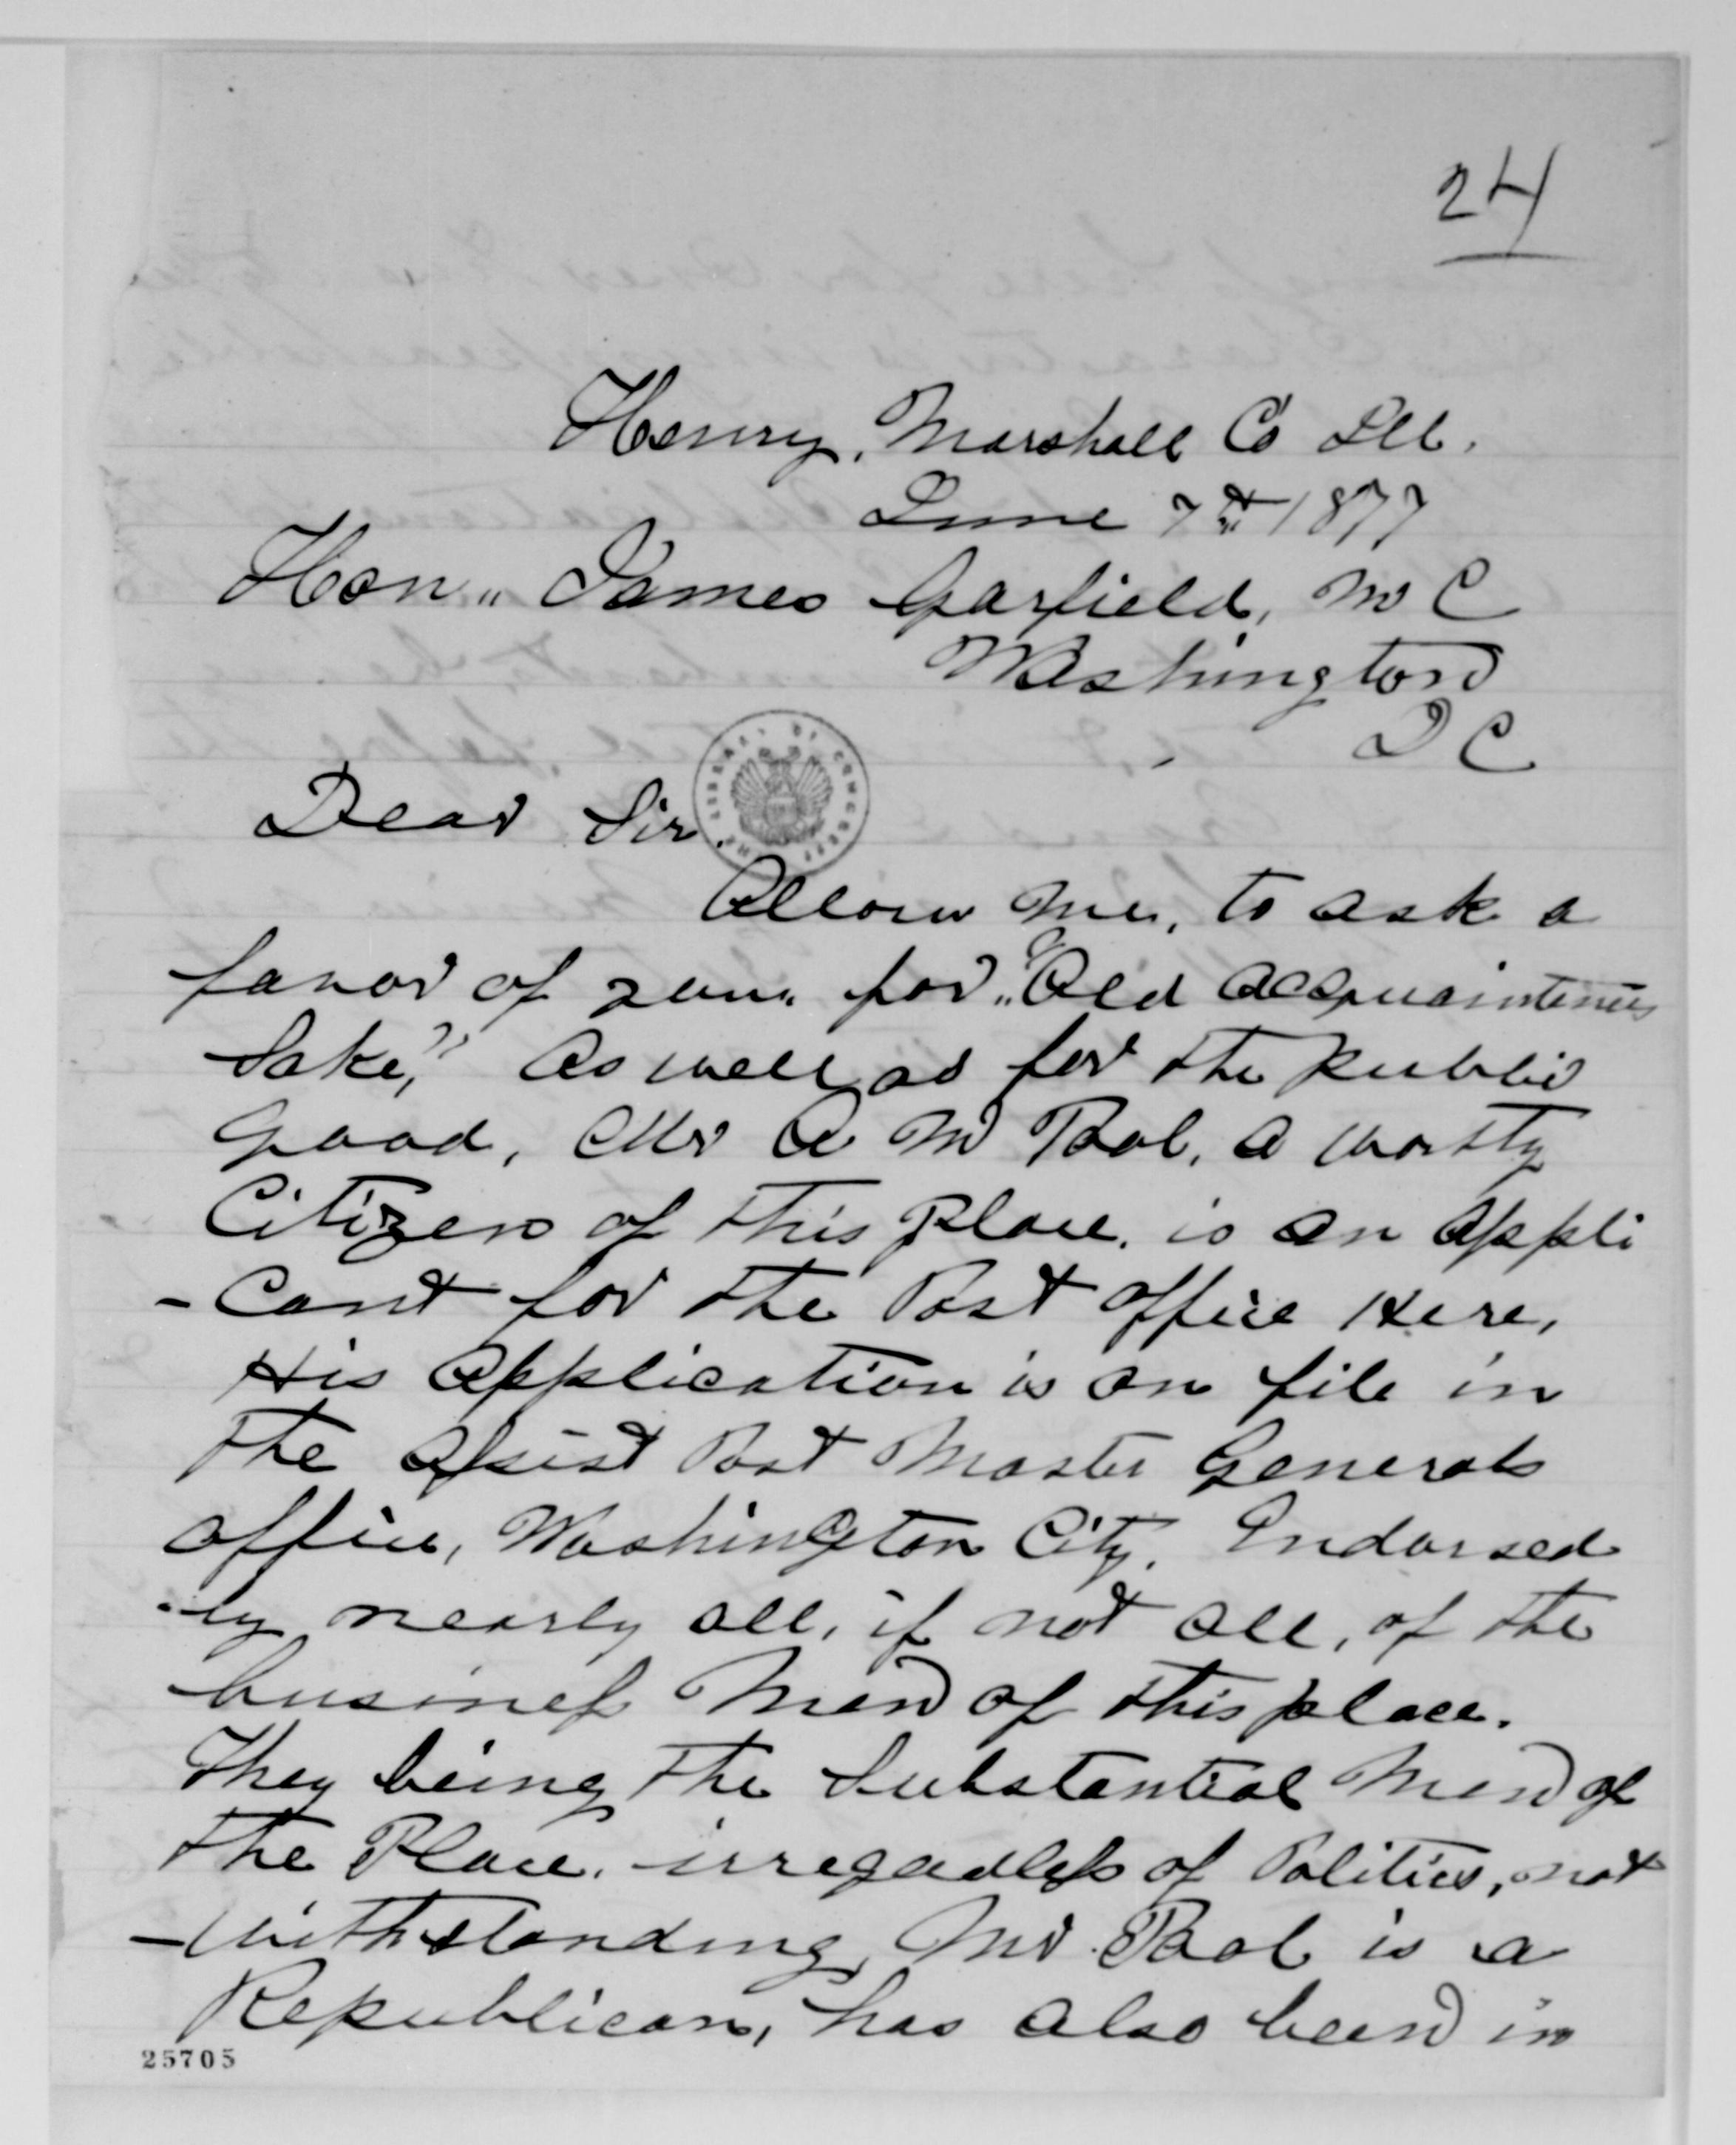 24
Henry, Marshall Co Ill.
June 7th 1877
Hon" James Garfield, M C
Washington
D C
Dear Sir.
Allow me, to ask a
favor of you. for "Old Acquaintences
Sake," As well as for the public
Good, Mr A M Pool, a worthy
Citizen of this Place. is an Appli
-cant for the Post Office Here,
His Application is on file in
the Assist Post Master Generals
office, Washington City. Endorsed
by nearly all, if not all, of the
business Men of this place.
They being the Substantial Men of
the Place. irregadless of Politics, not
-withstanding, Mr. Pool is a
Republican, has also been in
25705